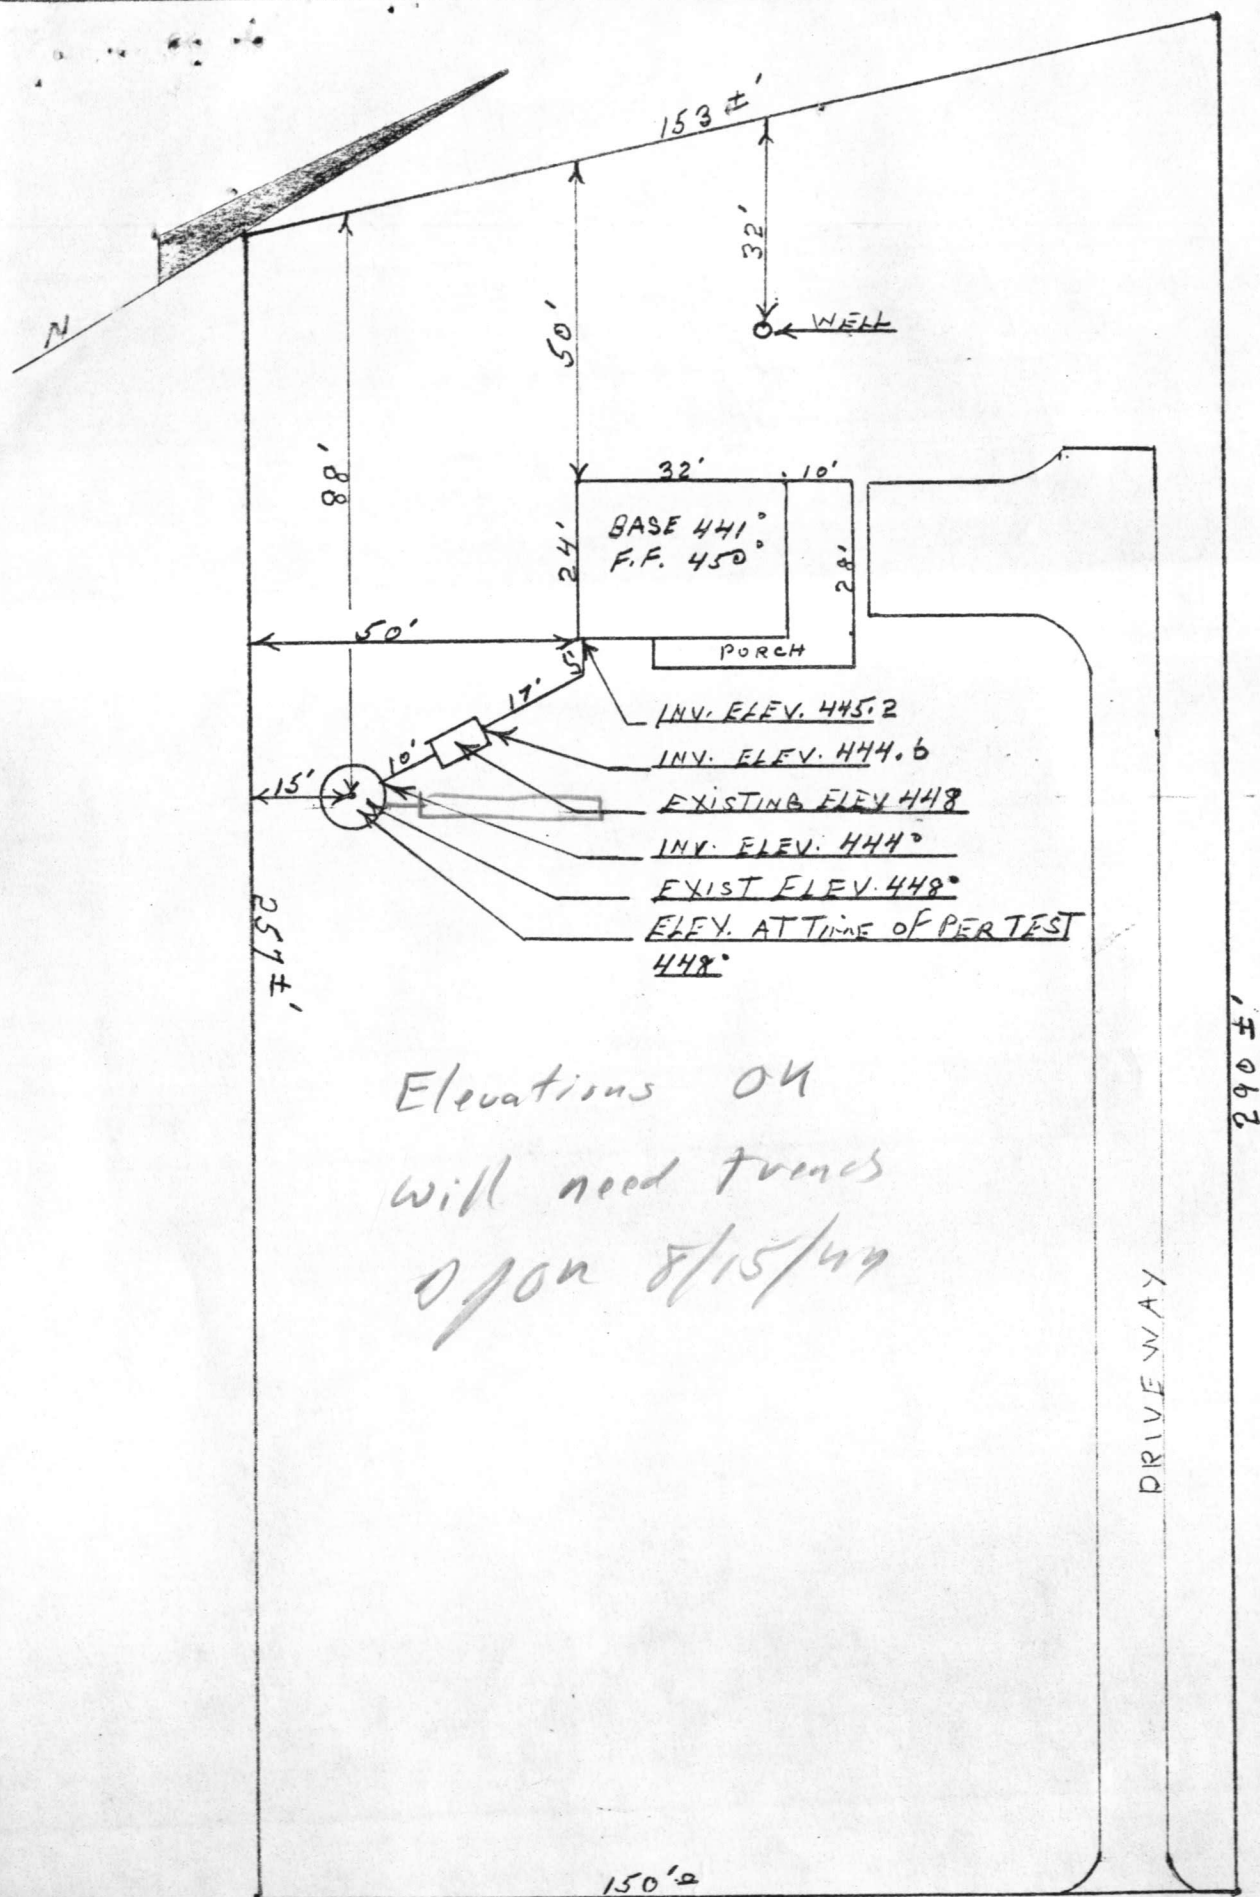 153 ±'
32'
WELL
N
50'
88'
32'
10'
BASE 441°
F.F. 450°
24'
28'
50'
PORCH
5'
17'
10'
15'
INV. ELEV. 445.2
INV. ELEV. 444.6
EXISTING ELEV 448
INV. ELEV. 444°
EXIST ELEV. 448°
ELEV. AT TIME OF PER TEST
448°
257 ±'
290 ±'
Elevations OK
Will need trench
8/15/
DRIVEWAY
150'